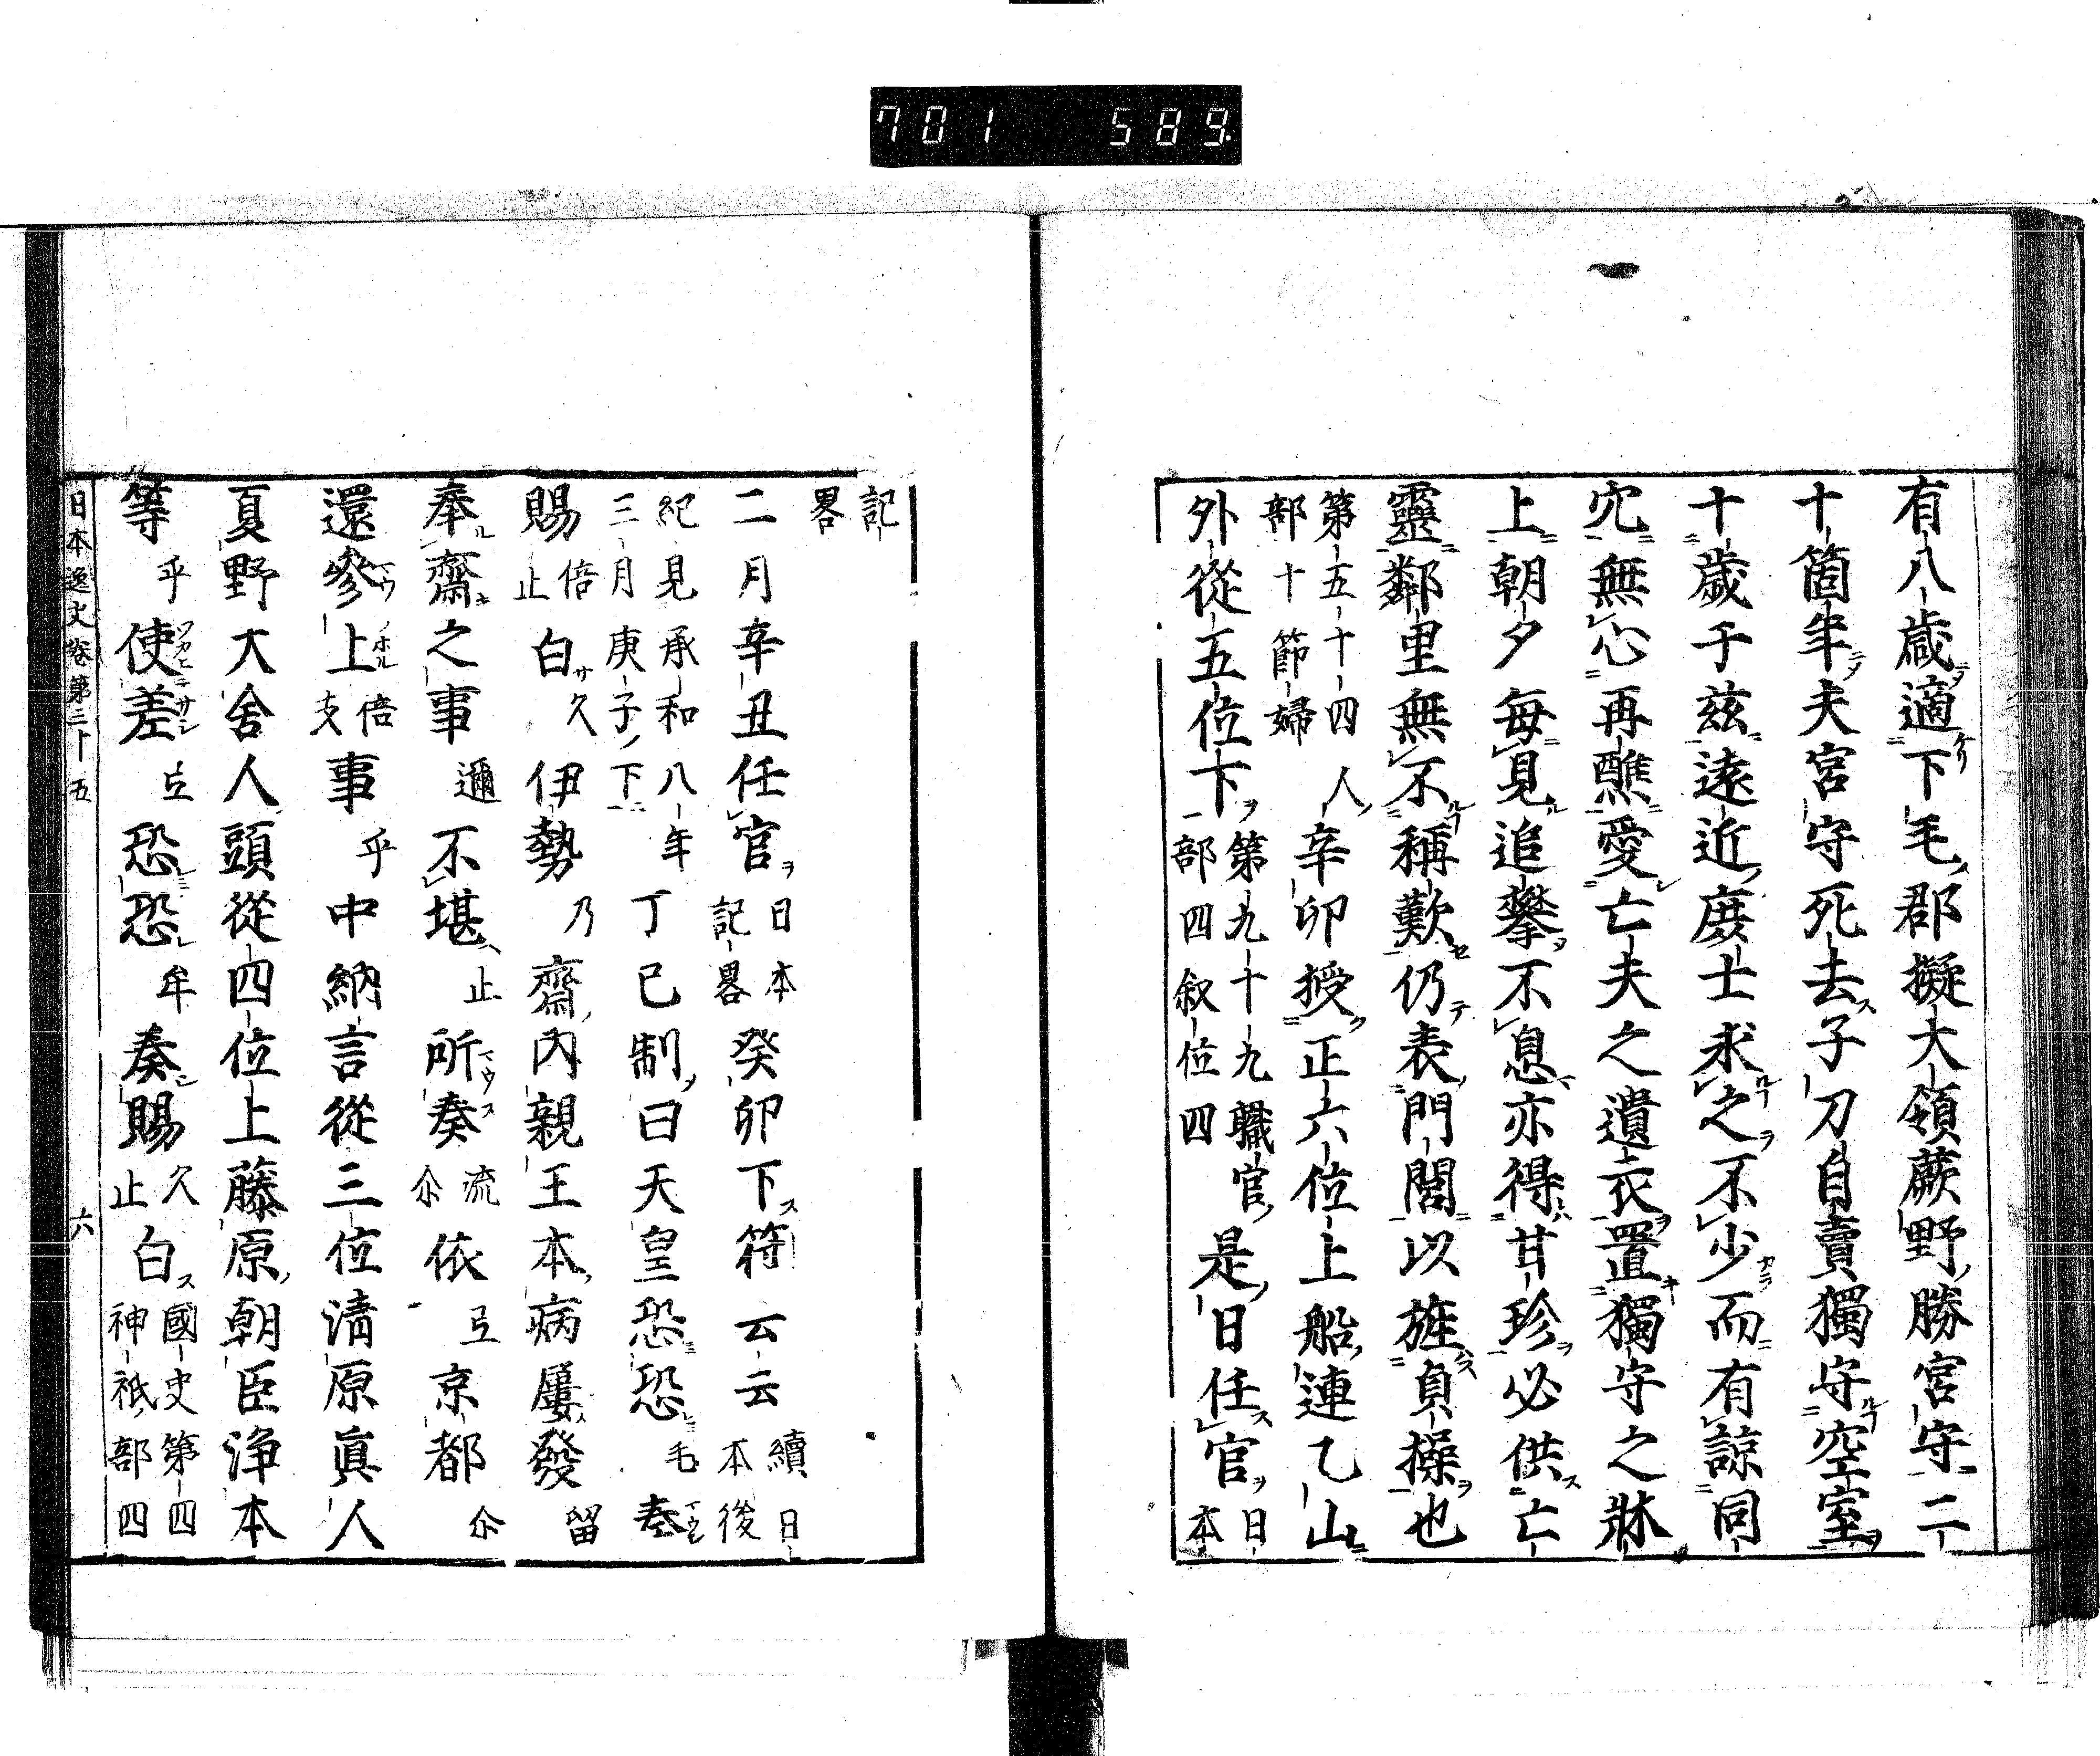 701 589
有八歳適下毛郡擬大領蕨野勝宮守二
十箇年夫宮守死去子刀自賣獨守空室
十歳于玆遠近庶士求之不少而有諒同
穴無心再醮愛亡夫之遺衣置獨守之牀
上朝夕毎見追攀不息亦得甘珍必供亡
靈鄰里無不稱歎仍表門閭以旌貞操也
第五十四人
部十節婦
辛卯授正六位上船連乙山
外從五位下
第九十九職官
部四叙位四
是日任官
日
本
記
畧
二月辛丑任官
日本
記畧
癸卯下符云云
續日
本後
紀見承和八年
三月庚子下
丁巳制曰天皇恐恐毛奏
賜倍止白久伊勢乃齋内親王本病屢發留
奉齋之事邇不堪止所奏流尒依弖京都尒
還參上倍支事乎中納言從三位清原眞人
夏野大舍人頭從四位上藤原朝臣浄本
等乎使差弖恐恐牟奏賜久止白
國史第四
神祇部四
日本逸史卷第三十五
六